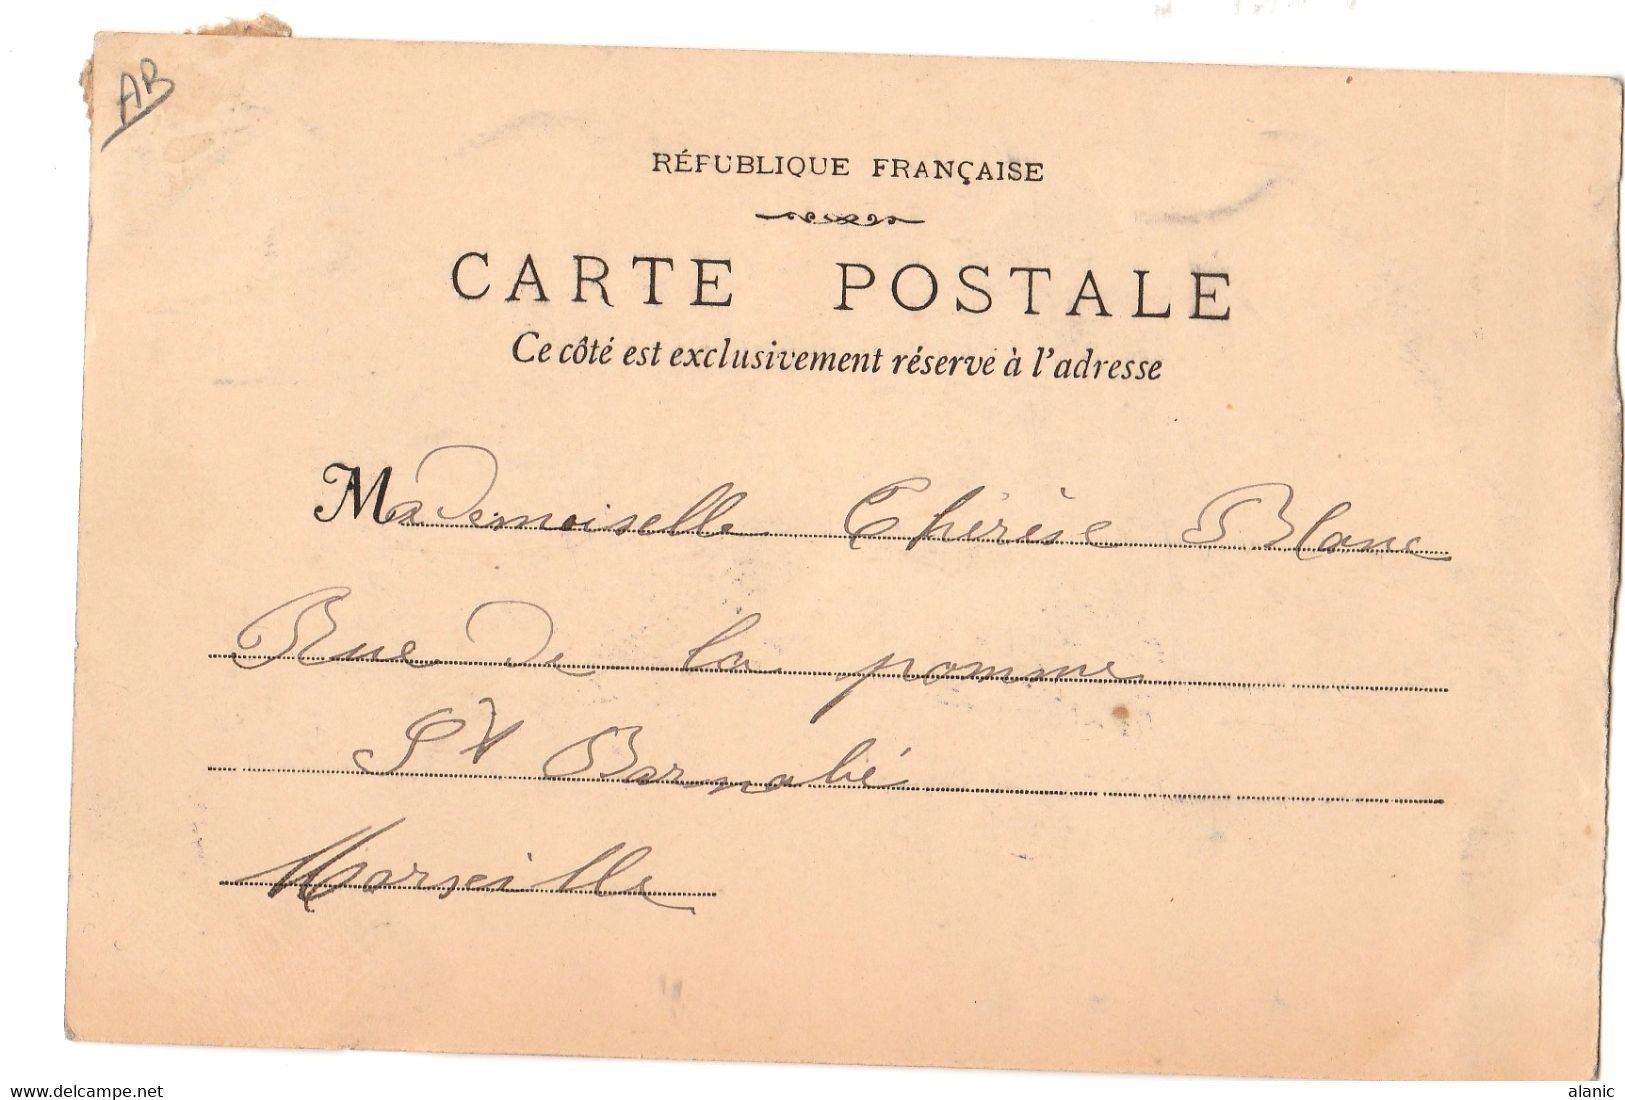 AB
RÉPUBLIQUE FRANÇAISE
CARTE POSTALE
Ce côté est exclusivement réservé à l'adresse
Mademoiselle Thérèse Blanc
Rue de la pomme
St Barnabé
Marseille
www.delcampe.net
alanic